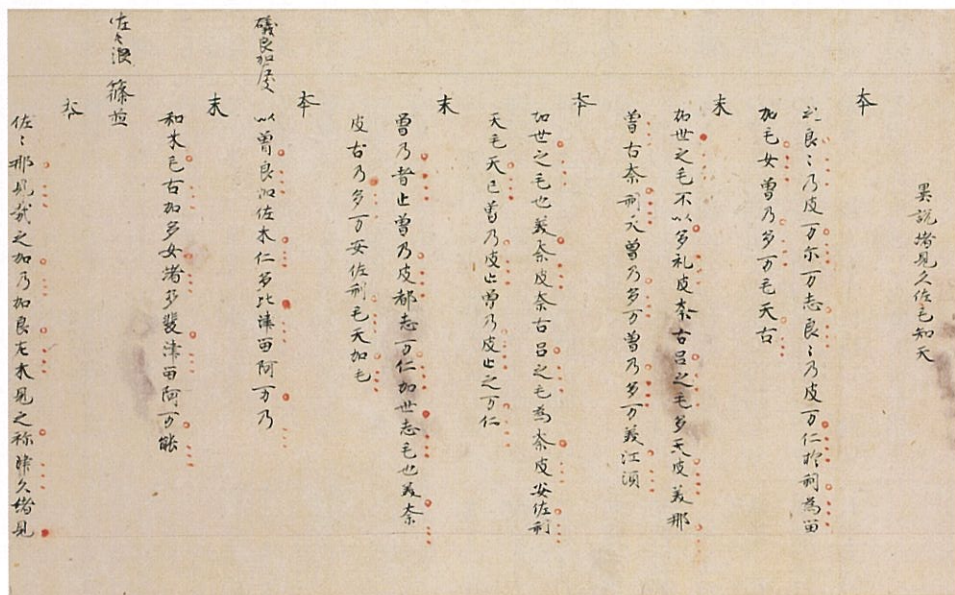 異説堵見久佐毛知天
本
礼良〻乃皮万尓万志良〻乃皮万仁於利為留
加毛女曽乃多万毛天古
末
加世之毛不以多礼皮奈古呂之毛多天皮美那
曽古奈利天曽乃多万曽乃多万美江須
本
加世之毛也美奈皮奈古呂之毛為奈皮安佐利
天毛天己曽乃皮止曽乃皮止之万仁
末
曽乃皮止曽乃皮都志万仁加世志毛也美奈
皮古乃多万安佐利毛天加毛
本
礒良加崎
以曽良加佐木仁多比津留阿万乃
末
和木己古加多女堵多比津留阿万能
佐〻浪 篠並
本
佐〻那見哉之加乃加良左木見之祢津久堵見